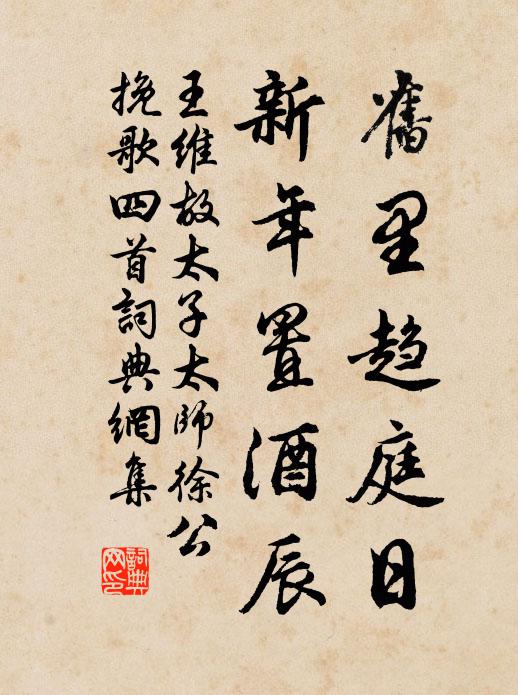 舊里趨庭日
新年置酒辰
王維故太子太師徐公
挽歌四首詞典網集
詞典網印